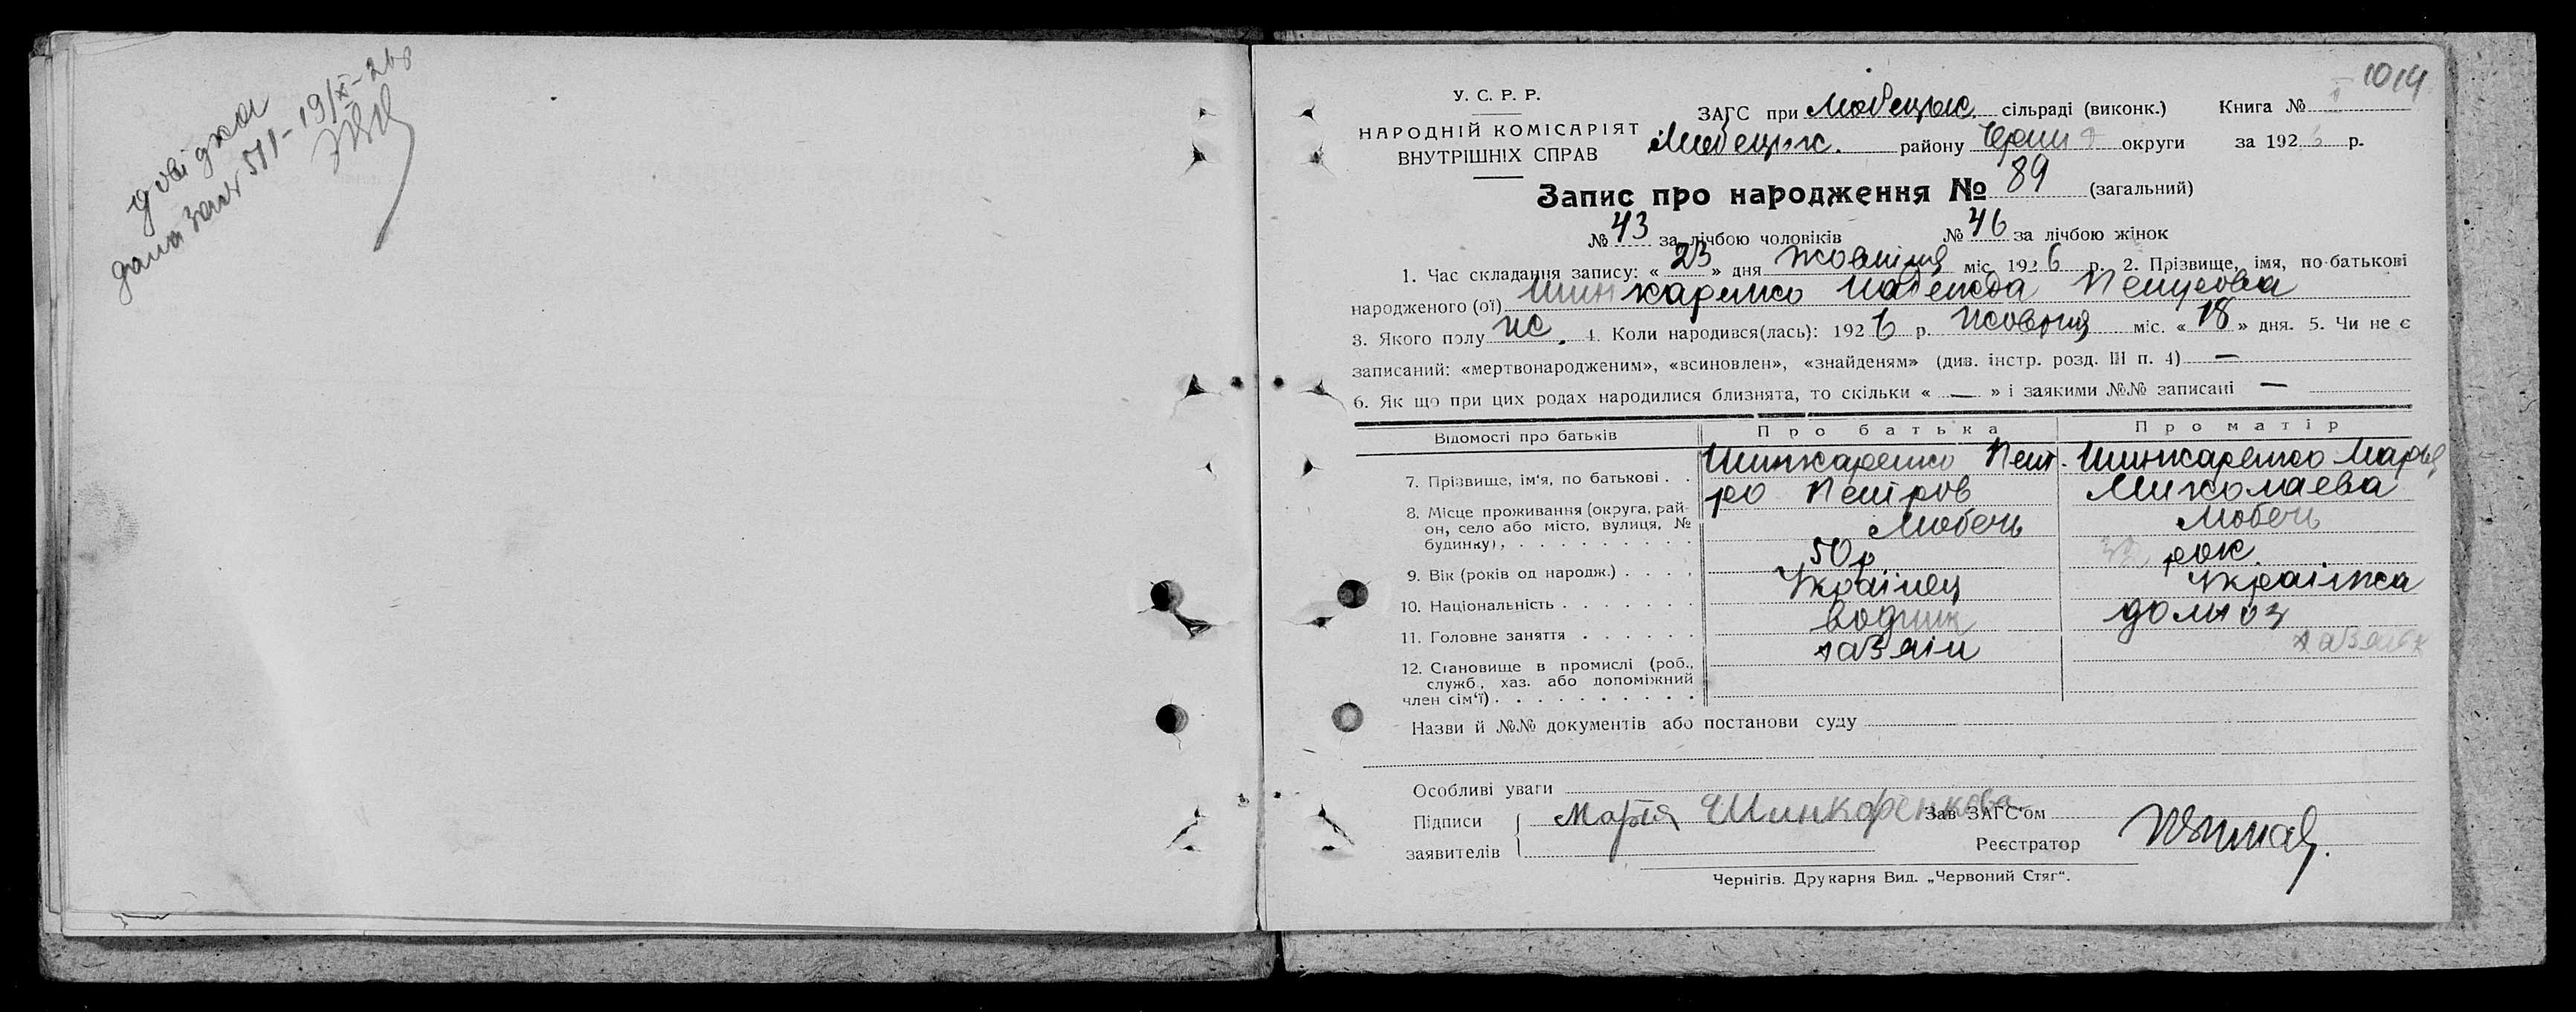 довідка
дана за № 511 - 19/XI-26
1014
У. С. Р. Р.
НАРОДНІЙ КОМІСАРІЯТ
ВНУТРІШНІХ СПРАВ
ЗАГС при Любецьк. сільраді (виконк.) Книга №
Любецьк. району Черни округи за 1926 р.
Запис про народження № 89 (загальний)
№ 43 за лічбою чоловіків № 46 за лічбою жінок
1. Час складання запису: « 23 » дня жовтня міс. 1926 р. 2. Прізвище, імя, по-батькові
народженого (ої) Шинкаренко Надежда Петровна
3. Якого полу ж. 4. Коли народився(лась): 1926 р. жовтня міс. « 18 » дня. 5. Чи не є
записаний: «мертвонародженим», «всиновлен», «знайденям» (див. інстр. розд. III п. 4) —
6. Як що при цих родах народилися близнята, то скільки « — » і заякими №№ записані —
Відомості про батьків Про батька Про матір
7. Прізвище, ім'я, по батькові . . Шинкаренко Пет- Шинкаренко Марья
ро Петров Миколаева
8. Місце проживання (округа, рай-
он, село або місто, вулиця, №
будинку), . . . . . . . . . Любечь Любечь
9. Вік (років од народж.) . . . . 50 р рок
10. Національність . . . . . . . Українец Українка
11. Головне заняття . . . . . . водник домхоз
12. Становище в промислі (роб.,
служб., хаз. або допоміжний
член сім'ї) . . . . . . . . .
Назви й №№ документів або постанови суду
Особливі уваги
Підписи
заявителів
Марія Шинкаренкова
Зав ЗАГС'ом
Реєстратор
Чернігів. Друкарня Вид. „Червоний Стяг“.